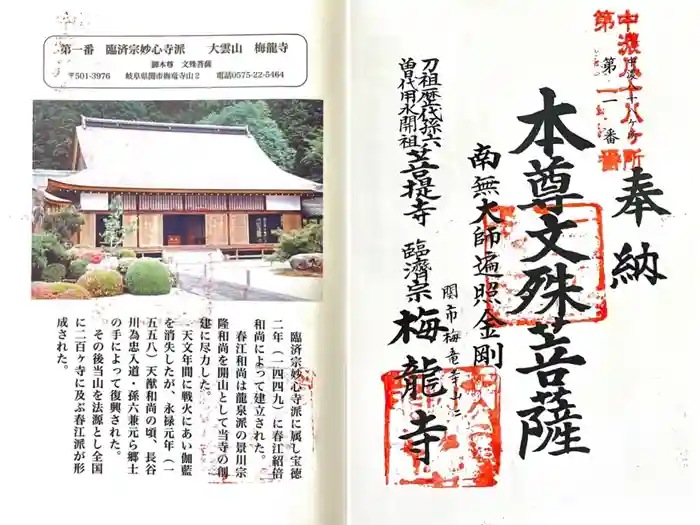 第一番　臨済宗妙心寺派　　大雲山　梅龍寺
御本尊　文殊菩薩
〒501-3976　岐阜県関市梅竜寺山2　電話0575-22-5464
臨済宗妙心寺派に属し宝徳
二年（一四四九）に春江紹倍
和尚によって建立された。
春江和尚は龍泉派の景川宗
隆和尚を開山として当寺の創
建に尽力した。
天文年間に戦火にあい伽藍
を消失したが、永禄元年（一
五五八）天猷和尚の頃、長谷
川為忠入道・孫六兼元ら郷士
の手によって復興された。
その後当山を法源とし全国
に二百ヶ寺に及ぶ春江派が形
成された。
中濃八十八ヶ所
第一番
奉納
本尊文殊菩薩
南無大師遍照金剛
関市梅竜寺山二
刀祖歴代孫六
曽代用水開祖
菩提寺　臨濟宗　梅龍寺